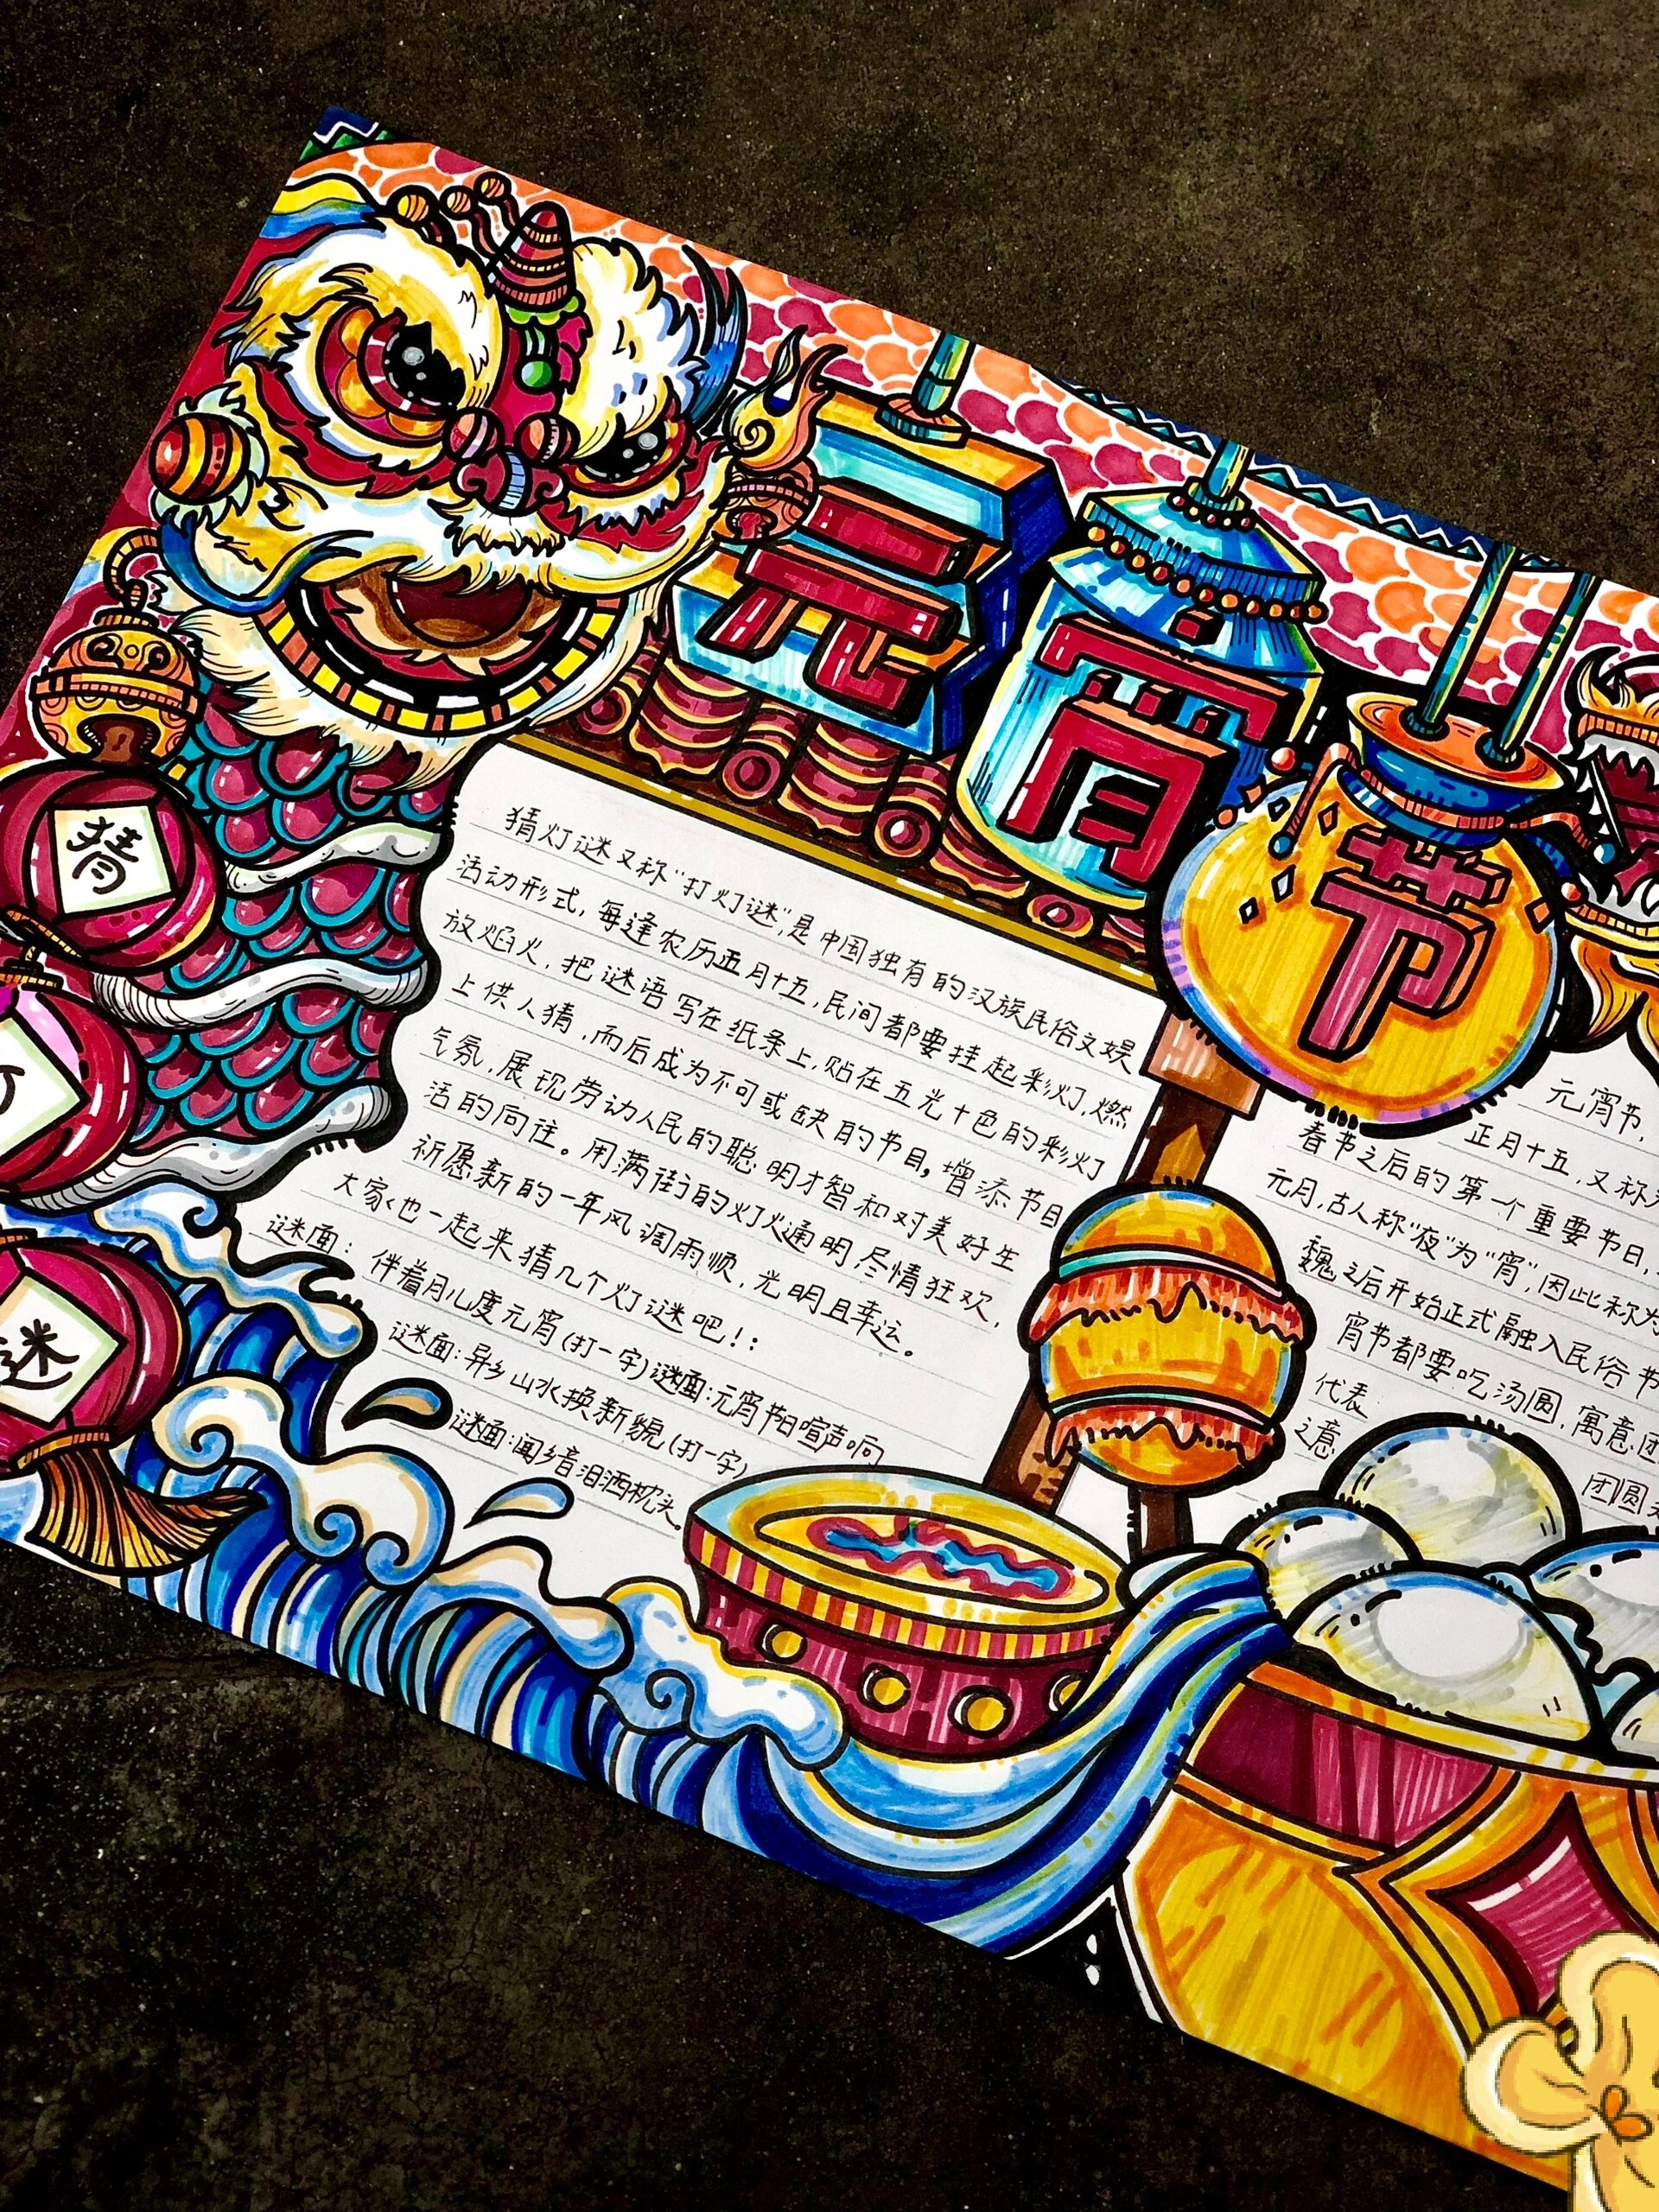 元宵节
猜
谜
猜灯谜又称“打灯谜”，是中国独有的汉族民俗文娱
活动形式，每逢农历正月十五，民间都要挂起彩灯，燃
放焰火，把谜语写在纸条上，贴在五光十色的彩灯
上供人猜，而后成为不可或缺的节目，增添节日
气氛，展现劳动人民的聪明才智和对美好生
活的向往。用满街的灯火通明尽情狂欢，
祈愿新的一年风调雨顺，光明且幸运。
大家也一起来猜几个灯谜吧！：
谜面：伴着月儿度元宵（打一字）谜面：元宵节日喧声响
谜面：异乡山水换新貌（打一字）
谜面：闻乡音泪洒枕头。
元宵节，
正月十五，又称为
春节之后的第一个重要节日，
元月，古人称“夜”为“宵”，因此称为
魏之后开始正式融入民俗节
宵节都要吃汤圆，寓意团
代表
之意
团圆